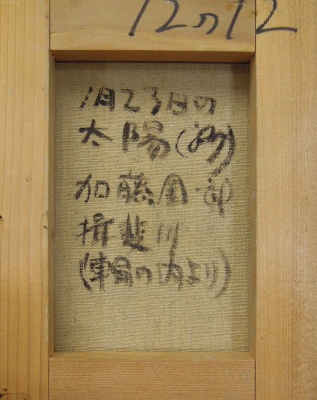 12の12
1月23日の
太陽(夕)
加藤金一郎
揖斐川
(車窓の内より)